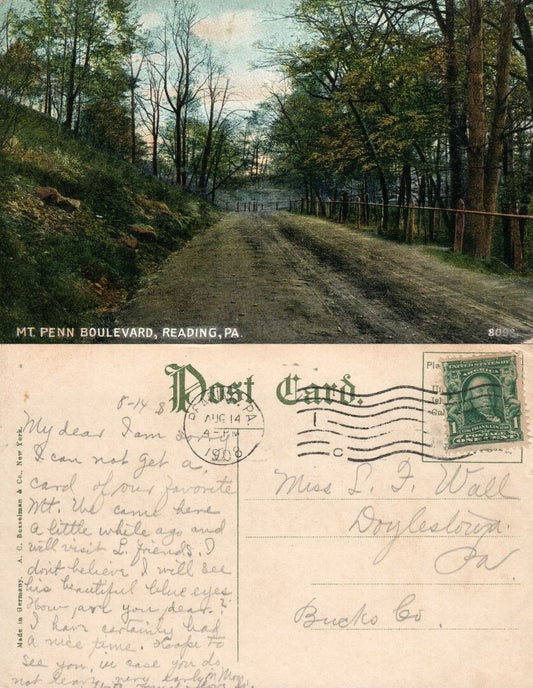 MT. PENN BOULEVARD, READING, PA.
Post Card.
8-14 8
AUG 14
4-PM
1908
UNITED STATES OF AMERICA
1
Made in Germany. A. C. Bosselman & Co., New York.
My dear I am sorry
I can not get a
card of our favorite
Mt. We came here
a little while ago and
will visit L. friends. I
don't believe I will see
his beautiful blue eyes
How are you dear?
I have certainly had
a nice time. Hoope to
see you, in case you do
not leave very early in Mon.
Miss L. F. Wall
Doylestown.
Pa
Bucks Co.